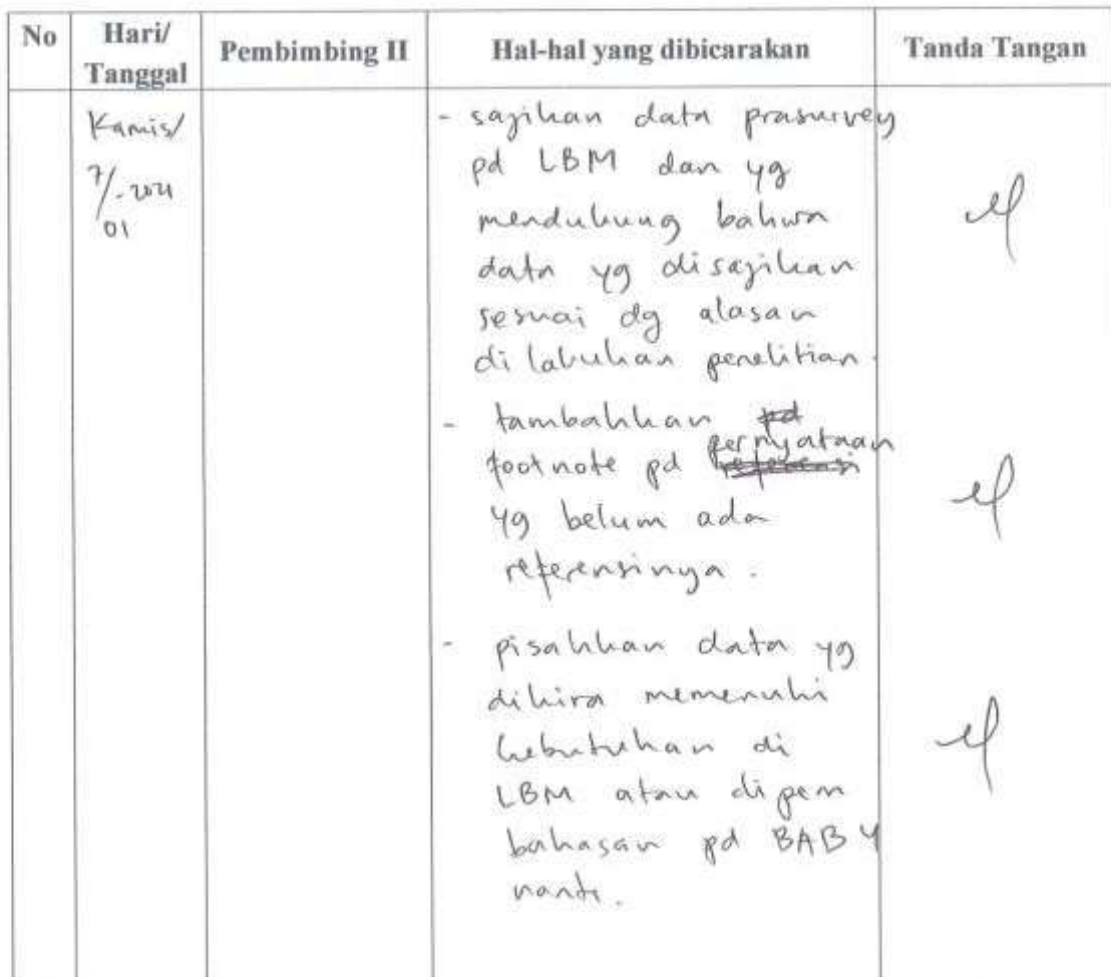 No Hari/ Tanggal Pembimbing II Hal-hal yang dibicarakan Tanda Tangan
Kamis/
7/-2021
01
- sajikan data prasurvey
pd LBM dan yg
mendukung bahwa
data yg disajikan
sesuai dg alasan
dilakukan penelitian.
- tambahkan pd
footnote pd pernyataan
referensi
yg belum ada
referensinya.
- pisahkan data yg
dikira memenuhi
kebutuhan di
LBM atau dipem
bahasan pd BAB 4
nanti.